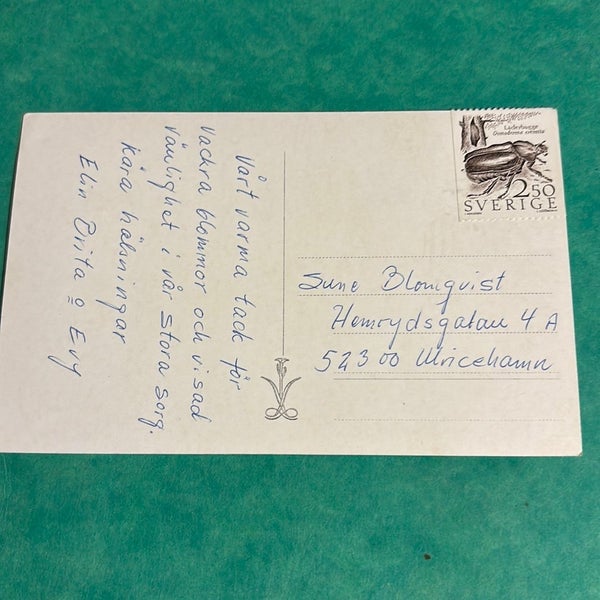 Vårt varma tack för
vackra blommor och visad
vänlighet i vår stora sorg.
Kära hälsningar
Elin Brita o Evy
Läderbagge
Osmoderma eremita
2.50
SVERIGE
Sune Blomqvist
Hemrydsgatan 4 A
523 00 Ulricehamn